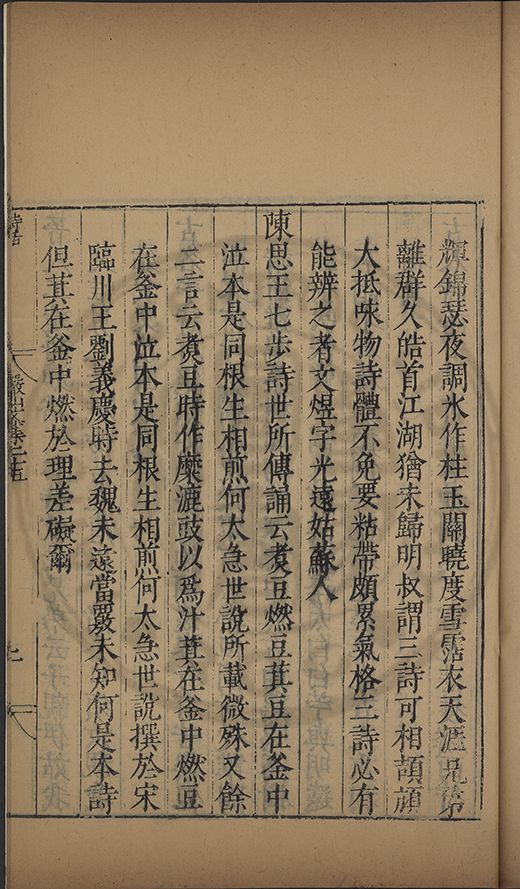 輝錦瑟夜調氷作柱玉關曉度雪霑衣天涯兄弟
離群久皓首江湖猶未歸明叔謂三詩可相頡頏
大抵咏物詩體不免要粘帶頗累氣格三詩必有
能辨之者文煜字光遠姑蘇人
陳思王七步詩世所傳誦云煑豆燃豆萁豆在釜中
泣本是同根生相煎何太急世說所載微殊又餘
二言云煑豆時作糜漉豉以爲汁萁在釜中燃豆
在釜中泣本是同根生相煎何太急世說撰於宋
臨川王劉義慶時去魏未遠當覈未知何是本詩
但萁在釜中燃於理差礙爾
詩話
七